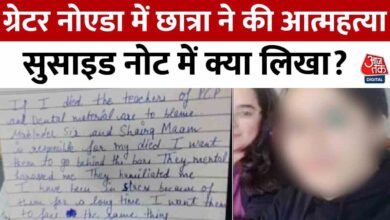 ग्रेटर नोएडा में छात्रा ने की आत्महत्या
सुसाइड नोट में क्या लिखा?
आज तक
DIGITAL
If I died the teachers of PCP
and Dental material are to blame
Mahinder Sir and Shairg Maam
is responsible for my died I want
them to go behind the bars They mental
harassed me They humiliated me
I have been in stress because of
them for a long time I want them
to the same thing